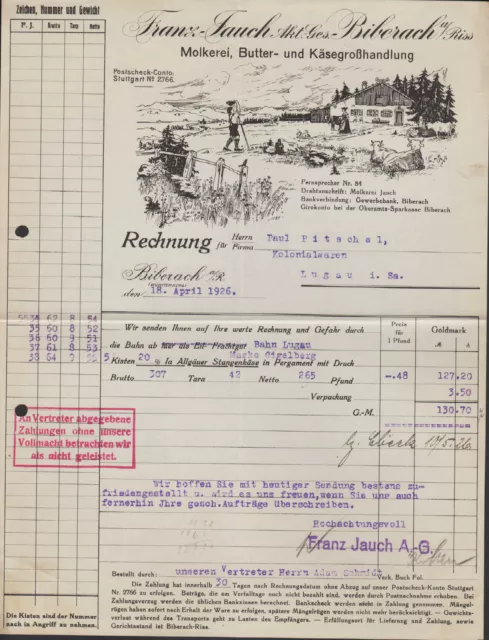 Zeichen, Nummer und Gewicht
F. J. Brutto Tara Netto
Franz Jauch Akt.-Ges. Biberach a/Riss
Molkerei, Butter- und Käsegroßhandlung
Postscheck-Conto:
Stuttgart Nº 2766.
Fernsprecher Nr. 84
Drahtanschrift: Molkerei Jauch
Bankverbindung: Gewerbebank, Biberach
Girokonto bei der Oberamts-Sparkasse Biberach
Rechnung für Herrn Firma Paul Pitschel,
Kolonialwaren
Lugau i. Sa.
Biberach a/R.
den 18. April 1926.
34 62 8 54
35 60 8 52
36 60 9 51
37 61 8 53
38 64 9 55
Wir senden Ihnen auf Ihre werte Rechnung und Gefahr durch
Preis für 1 Pfund
Goldmark
die Bahn ab hier als Eil- Frachtgut Bahn Lugau
Marke Gigelberg
5 Kisten 20 % Ia Allgäuer Stangenkäse in Pergament mit Druck
Brutto 307 Tara 42 Netto 265 Pfund -.48 127.20
Verpackung 3.50
G.-M. 130.70
An Vertreter abgegebene
Zahlungen ohne unsere
Vollmacht betrachten wir
als nicht geleistet.
Wir hoffen Sie mit heutiger Sendung bestens zu-
friedengestellt u. wird es uns freuen, wenn Sie uns auch
fernerhin Ihre gesch. Aufträge überschreiben.
Hochachtungsvoll
Franz Jauch A.-G.
Bestellt durch: unseren Vertreter Herrn Adam Schmidt
Die Zahlung hat innerhalb 30 Tagen nach Rechnungsdatum ohne Abzug auf unser Postscheck-Konto Stuttgart
Nr. 2766 zu erfolgen. Beträge, die am Verfalltage noch nicht bezahlt sind, werden durch Postnachnahme erhoben. Bei
Zahlungsverzug werden die üblichen Bankzinsen berechnet. Bankscheck werden nicht in Zahlung genommen. Mängel-
rügen haben sofort nach Erhalt der Ware zu erfolgen, spätere Mängelrügen werden nicht mehr berücksichtigt. — Gewichts-
verlust während des Transports geht zu Lasten des Empfängers. — Erfüllungsort für Lieferung und Zahlung, sowie
Gerichtsstand ist Biberach-Riss.
Die Kisten sind der Nummer
nach in Angriff zu nehmen.